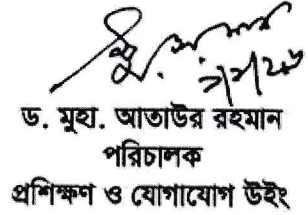 ড. মুহা. আতাউর রহমান
পরিচালক
প্রশিক্ষণ ও যোগাযোগ উইং